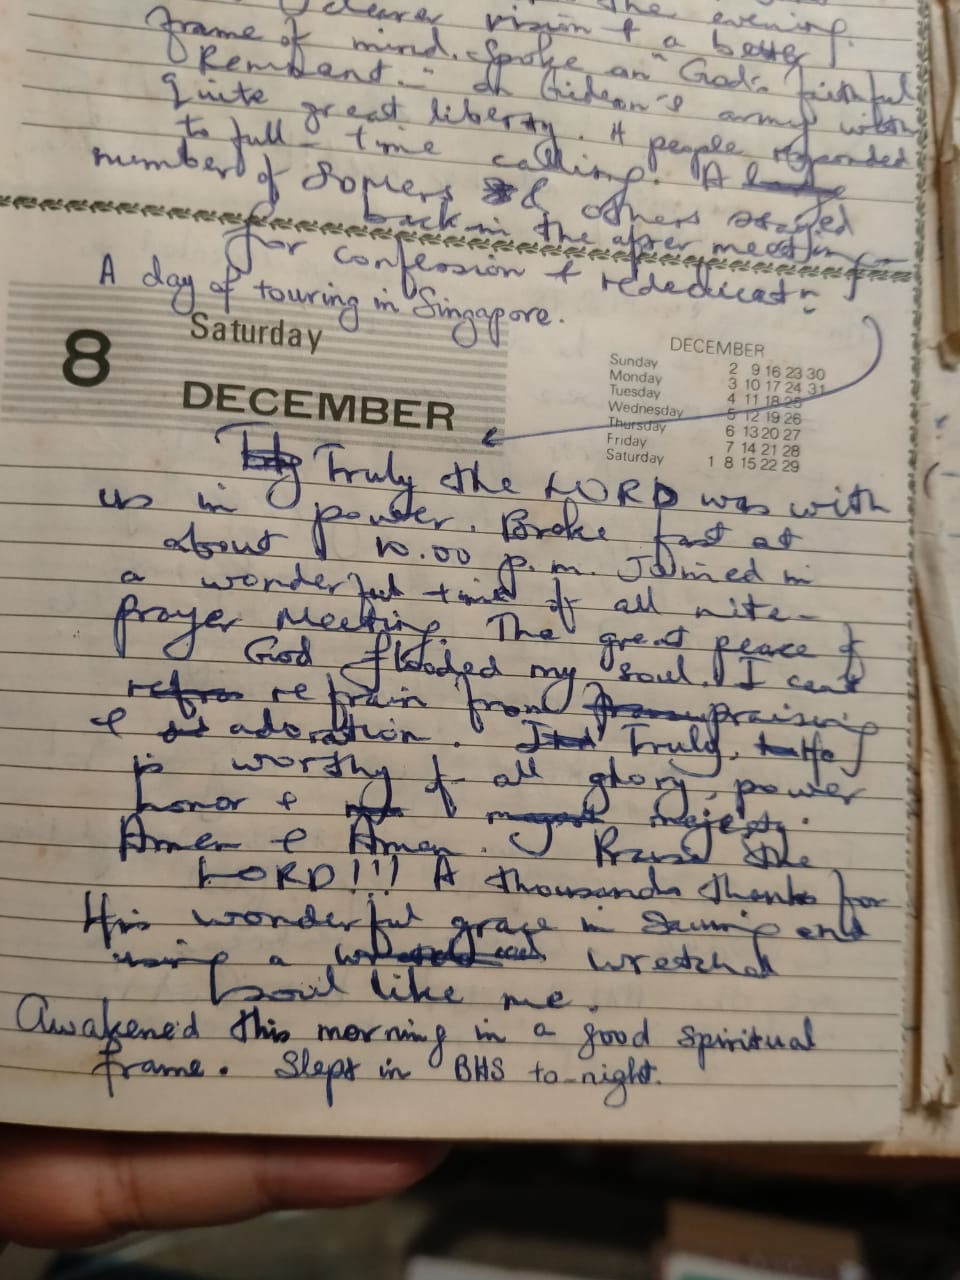 clearer vision & a better
the evening.
frame of mind. Spoke on "God's faithful
Remnant" – on Gideon's army with
quite great liberty. 4 people responded
to full-time calling. A
number of & others stayed
back in the after meeting
for confession & rededicatn:
A day of touring in Singapore.
8
Saturday
DECEMBER
DECEMBER
Sunday 2 9 16 23 30
Monday 3 10 17 24 31
Tuesday 4 11 18 25
Wednesday 5 12 19 26
Thursday 6 13 20 27
Friday 7 14 21 28
Saturday 1 8 15 22 29
Truly the LORD was with
us in power. Broke fast at
about 10.00 p.m. Joined in
a wonderful time of all nite-
prayer Meeting. The great peace of
God flooded my soul. I can't
refrain from praising
& adoration. Truly, He
is worthy of all glory, power
honor & majesty.
Amen & Amen. Praise the
LORD!!! A thousands thanks for
His wonderful grace in saving and
using a wretched
soul like me.
Awakened this morning in a good spiritual
frame. Slept in BHS to-night.